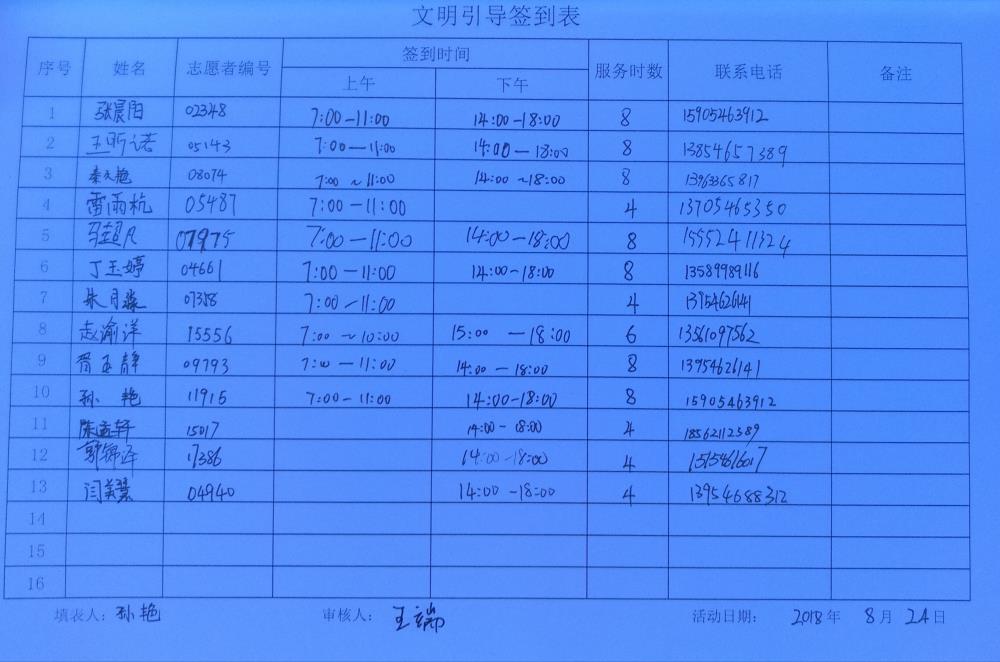 文明引导签到表
序号 姓名 志愿者编号 签到时间 服务时数 联系电话 备注
上午 下午
1 张晨阳 02348 7:00-11:00 14:00-18:00 8 15905463912
2 王昕诺 05143 7:00-11:00 14:00-18:00 8 13854657389
3 秦文艳 08074 7:00~11:00 14:00~18:00 8 13963365817
4 雷雨杭 05487 7:00-11:00 4 13705465350
5 马超凡 07975 7:00-11:00 14:00-18:00 8 15552411324
6 丁玉婷 04661 7:00-11:00 14:00-18:00 8 13589989116
7 朱月 07358 7:00-11:00 4 13954626141
8 赵渝洋 15556 7:00~10:00 15:00-18:00 6 13561097562
9 胥玉静 09793 7:00-11:00 14:00-18:00 8 13954626141
10 孙艳 11915 7:00-11:00 14:00-18:00 8 15905463912
11 陈孟轩 15017 14:00-18:00 4 18562112589
12 郭锦泽 17386 14:00-18:00 4 15154616017
13 闫美慧 04940 14:00-18:00 4 13954688312
14
15
16
填表人：孙艳 审核人：王端 活动日期： 2018年 8月 24日